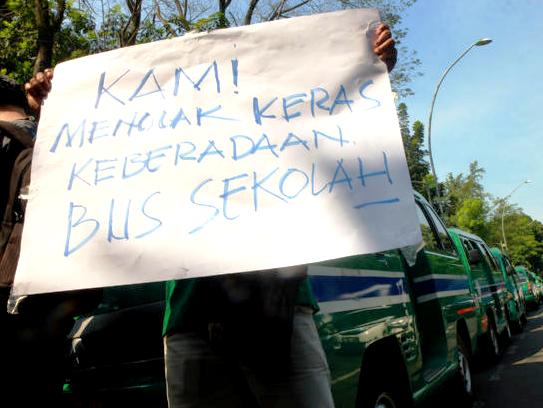 KAMI
MENOLAK KERAS
KEBERADAAN.
BUS SEKOLAH